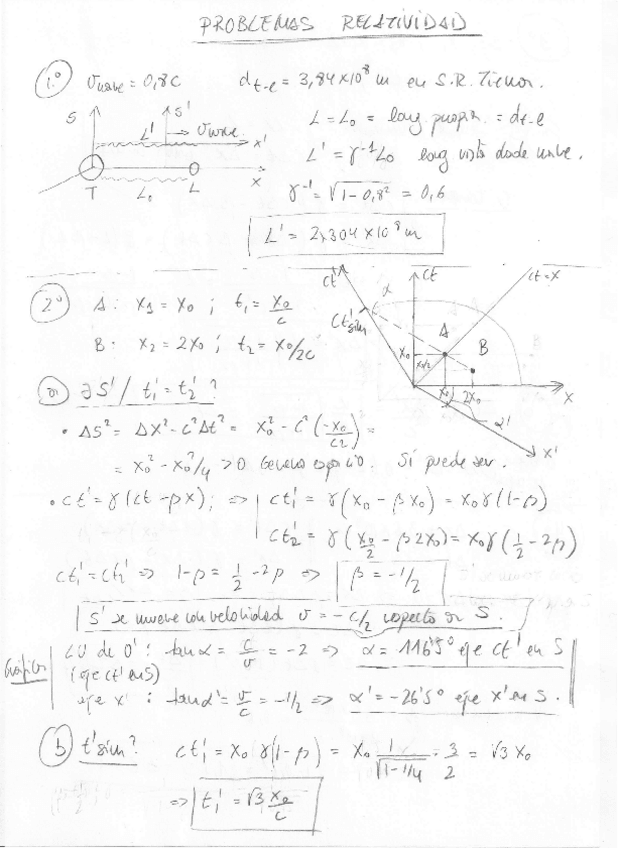 PROBLEMAS RELATIVIDAD
1.º v nave = 0,8c d t-l = 3,84 x 10⁸ m en S.R. Tierra.
S S' L' v nave x'
T L₀ L x
L = L₀ = long. propia = d t-l
L' = γ⁻¹L₀ long vista desde nave.
γ⁻¹ = √1-0,8² = 0,6
L' = 2,304 x 10⁸ m
2º A: x₁ = x₀ ; t₁ = x₀/c
B: x₂ = 2x₀ ; t₂ = x₀/2c
ct' α ct ct = x
ct' sim A B
x₀ x₀/2 x₀ 2x₀ x
α' x'
a) ∃ S' / t₁' = t₂' ?
• ΔS² = Δx² - c²Δt² = x₀² - c² (-x₀/c2)² =
= x₀² - x₀²/4 > 0 Género espacio. Sí puede ser.
• ct' = γ(ct - βx); => ct₁' = γ(x₀ - βx₀) = x₀γ(1-β)
ct₂' = γ(x₀/2 - β2x₀) = x₀γ(1/2 - 2β)
ct₁' = ct₂' => 1-β = 1/2 - 2β => β = -1/2
S' se mueve con velocidad v = -c/2 respecto de S.
Gráfico
LU de O' : tan α = c/v = -2 => α = 116'5º eje ct' en S
(eje ct' en S)
eje x' : tan α' = v/c = -1/2 => α' = -26'5º eje x' en S.
b) t' sim? ct₁' = x₀ γ(1-β) = x₀ 1/√1-1/4 · 3/2 = √3 x₀
=> t₁' = √3 x₀/c